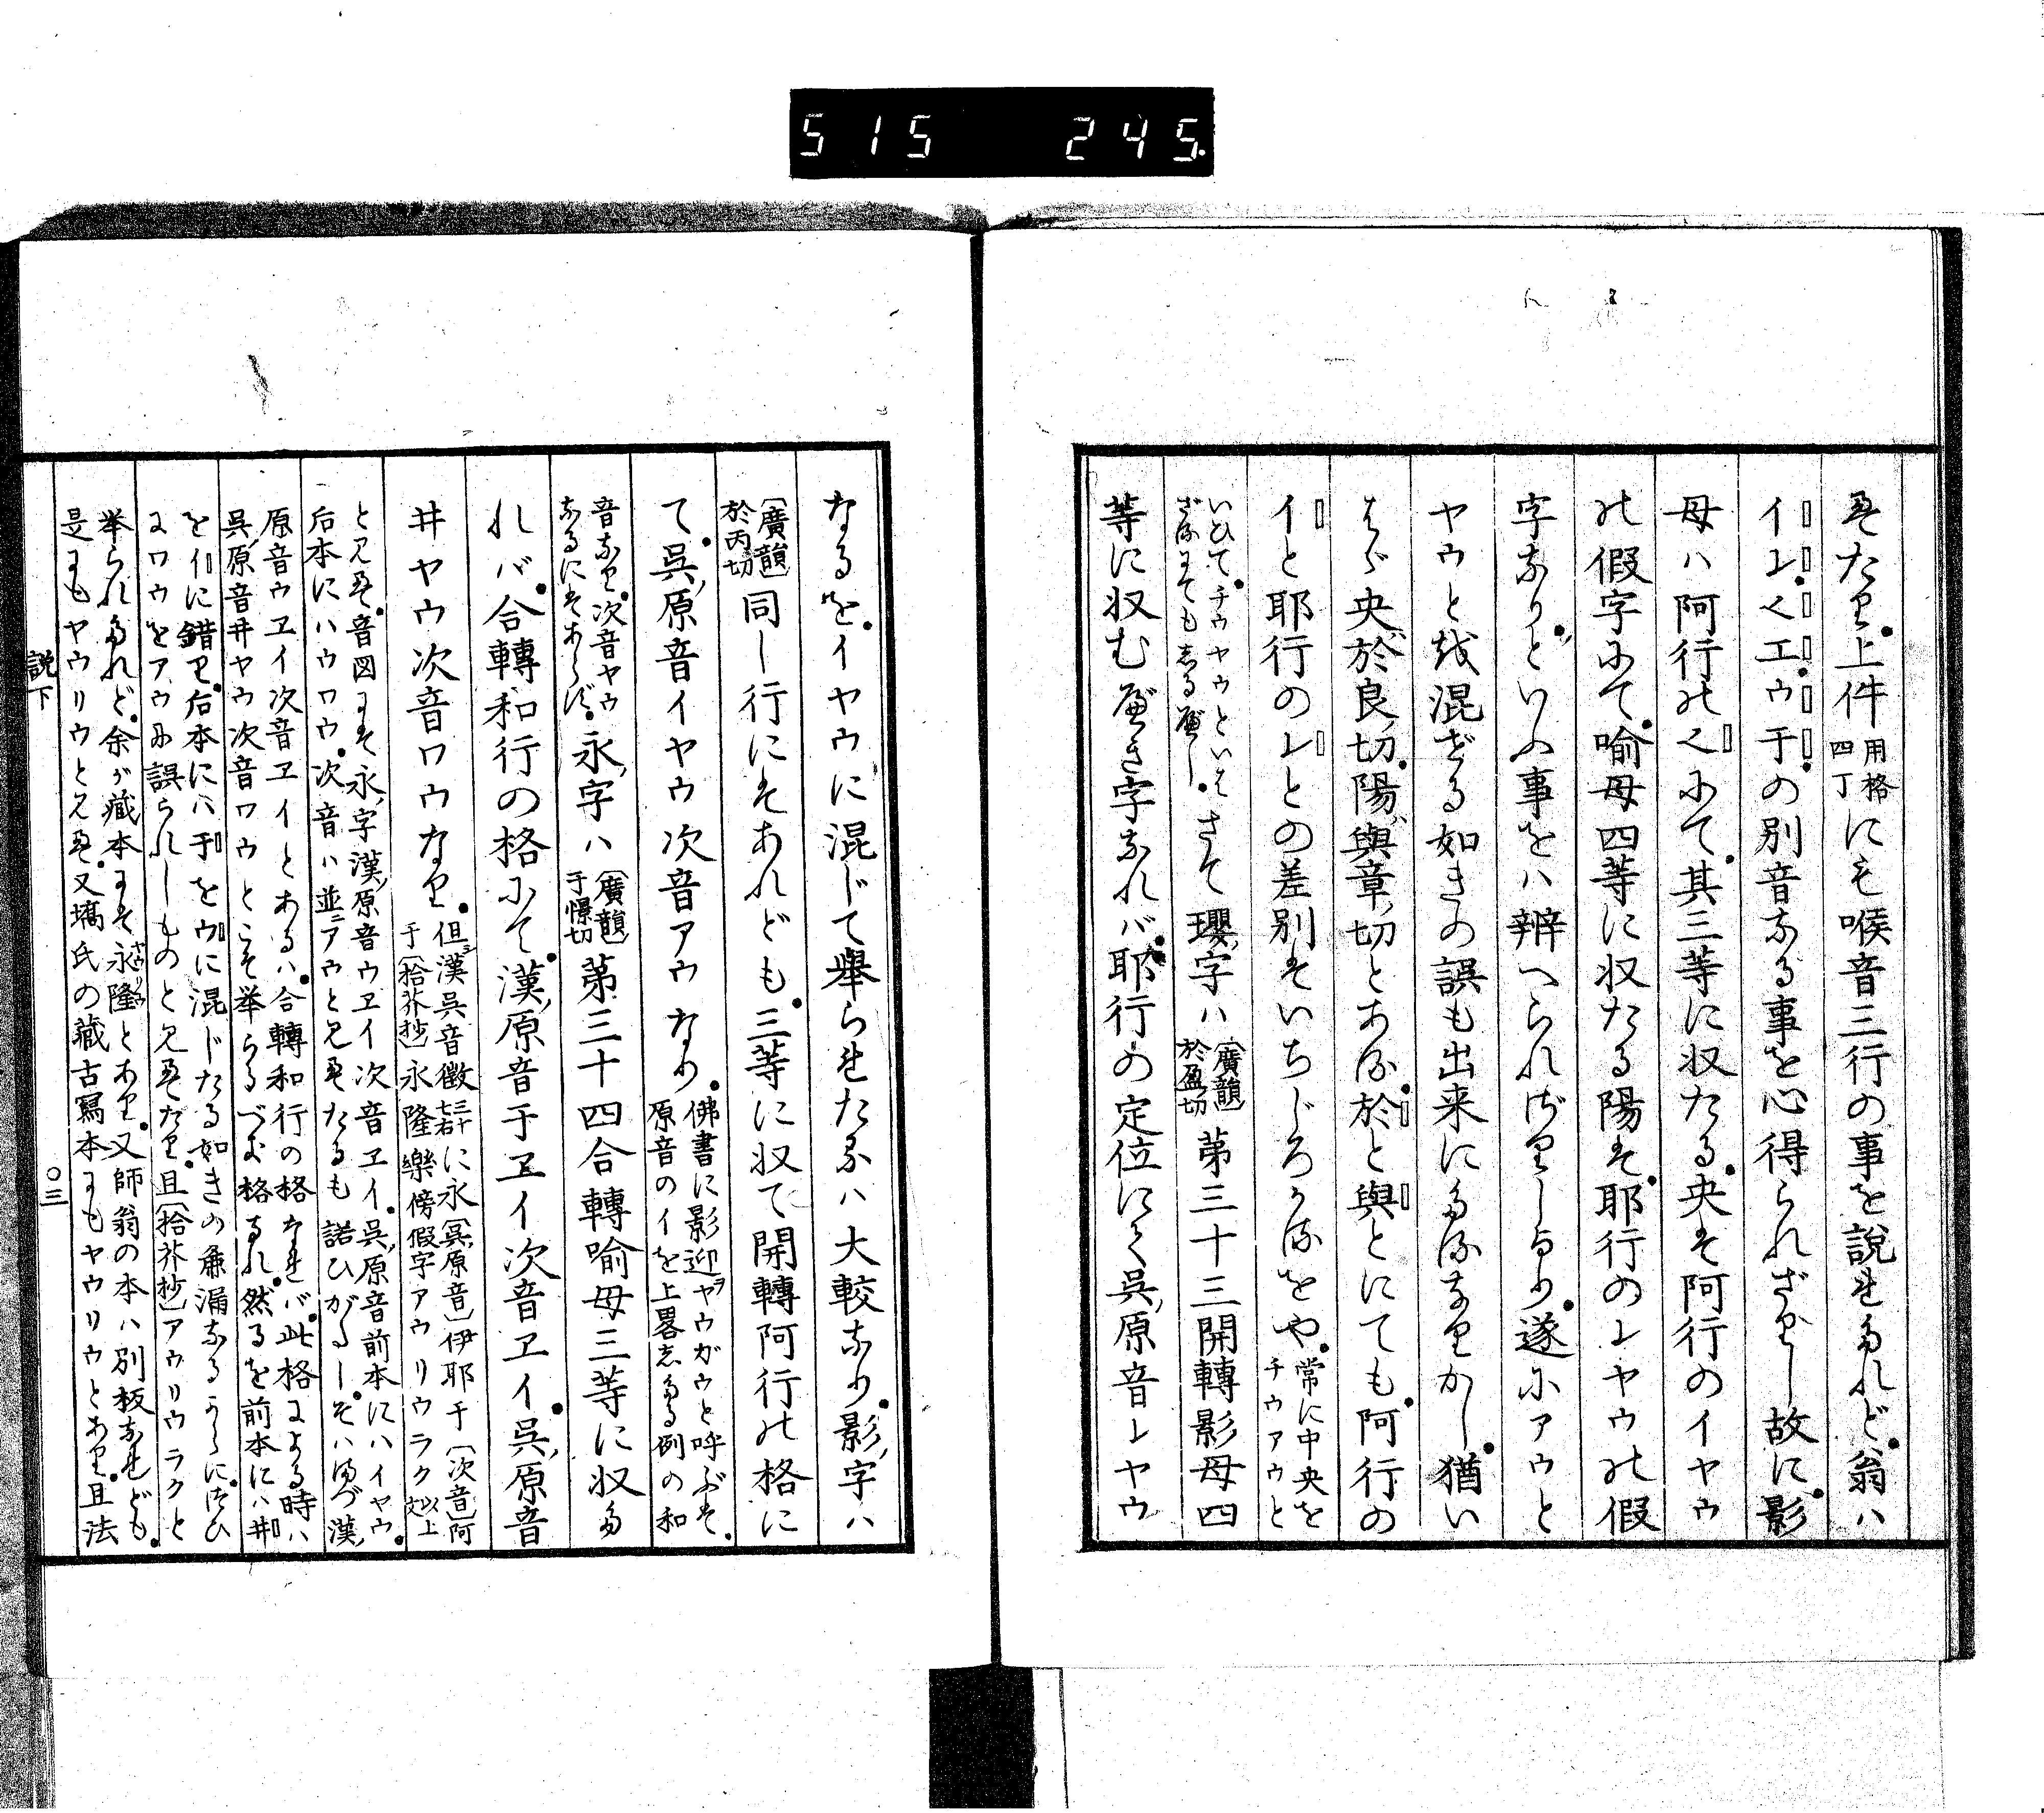 515 245.
えたり。上件用格四丁にも喉音三行の事を説れたれど。翁ハ
イ レ。く エ。ウ 于。の別音なる事を心得られざりし故に。影
母ハ阿行のくにて。其三等に収たる。央は阿行のイヤウ
の假字にて。喩母四等に収たる陽は。耶行のレヤウの假
字なり。といふ事をハ辨へられざりしなり。遂にアウと
ヤウとを混ぜる如きの誤も出来にたるなりかし。猶い
はゞ央於良切。陽與章切とある。於と與とにても。阿行の
イと耶行のレとの差別はいちじろきをや。常に中央を
チウアウと
いひて。チウヤウといは
ざるにても志る邊し。さて瓔字ハ〔廣韻〕於盈切第三十三開轉影母四
等に収むべき字なれバ。耶行の定位にて呉原音レヤウ
なるを。イヤウに混じて舉られたるハ大較なり。影字ハ
〔廣韻〕於丙切同し行にはあれども。三等に収て開轉阿行の格に
て。呉原音イヤウ次音アウなり。佛書に影迎ヲヤウガウと呼ぶは。
原音のイを上畧志たる例の和
音なり。次音ヤウ
なるにはあらず。永字ハ〔廣韻〕于憬切第三十四合轉喩母三等に収た
れバ。合轉和行の格にて。漢原音于ヱイ次音ヱイ。呉原音
井ヤウ次音ワウなり。但シ漢呉音徴三十七右に永〔呉原音〕伊耶于〔次音〕阿
于〔拾芥抄〕永隆樂傍假字アウリウラク以上文
と見え。音図には永字漢原音ウヱイ次音ヱイ。呉原音前本にハイヤウ。
后本にハウワウ。次音ハ並ニアウと見えたるも諾ひがたし。そハまづ漢
原音ウヱイ次音ヱイとあるハ。合轉和行の格なれバ。此格による時ハ
呉原音井ヤウ次音ワウとこそ挙らるべき格なれ。然るを前本にハ井
をイに錯り。后本にハ于をウに混じたる如きの麁漏なるうへに。つひ
にワウをアウに誤られしものと見えたり。且〔拾芥抄〕アウリウラクと
挙られたれど。余が藏本には永隆ヤウリウとあり。又師翁の本ハ別板なれども。
是にもヤウリウと見え。又塙氏の藏古寫本にもヤウリウとあり。且法
説下 ○三